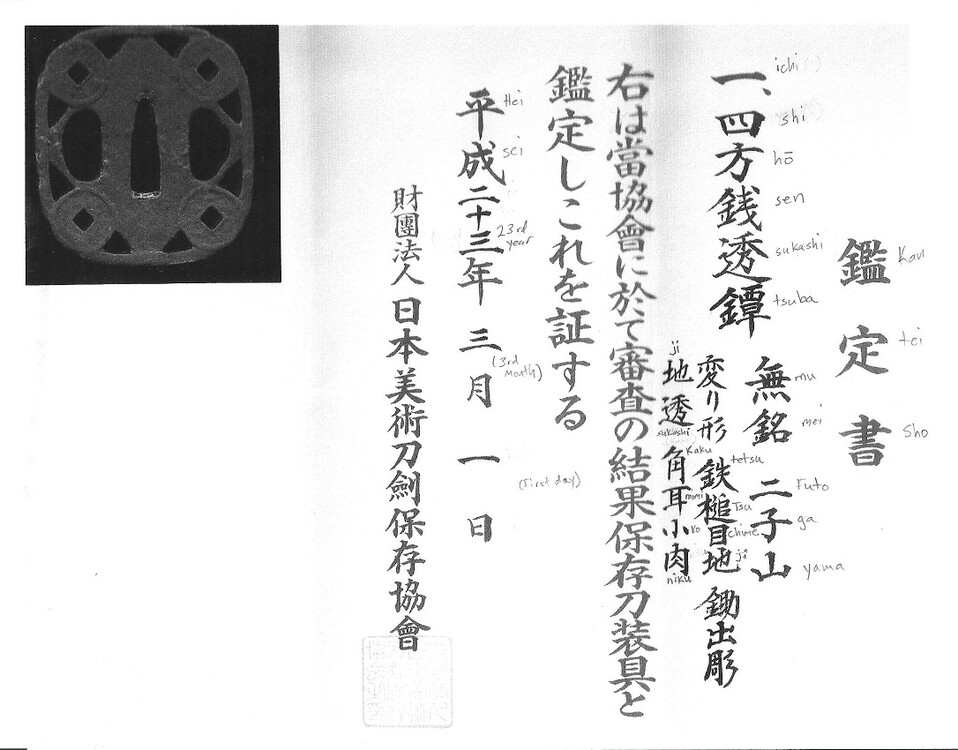 鑑定書
Kan
tei
Sho
一、四方銭透鐔
ichi
shi
hō
sen
sukashi
tsuba
無銘 二子山
mu
mei
Futa
ga
yama
変り形 鉄槌目地 鋤出彫
tetsu
tsu
chime
ji
地透 角耳小肉
ji
sukashi
Kaku
mimi
Ko
niku
右は當協會に於て審査の結果保存刀装具と
鑑定しこれを証する
平成二十三年 三月 一日
Hei
sei
23rd
year
(3rd
month)
(first day)
財團法人 日本美術刀劍保存協會